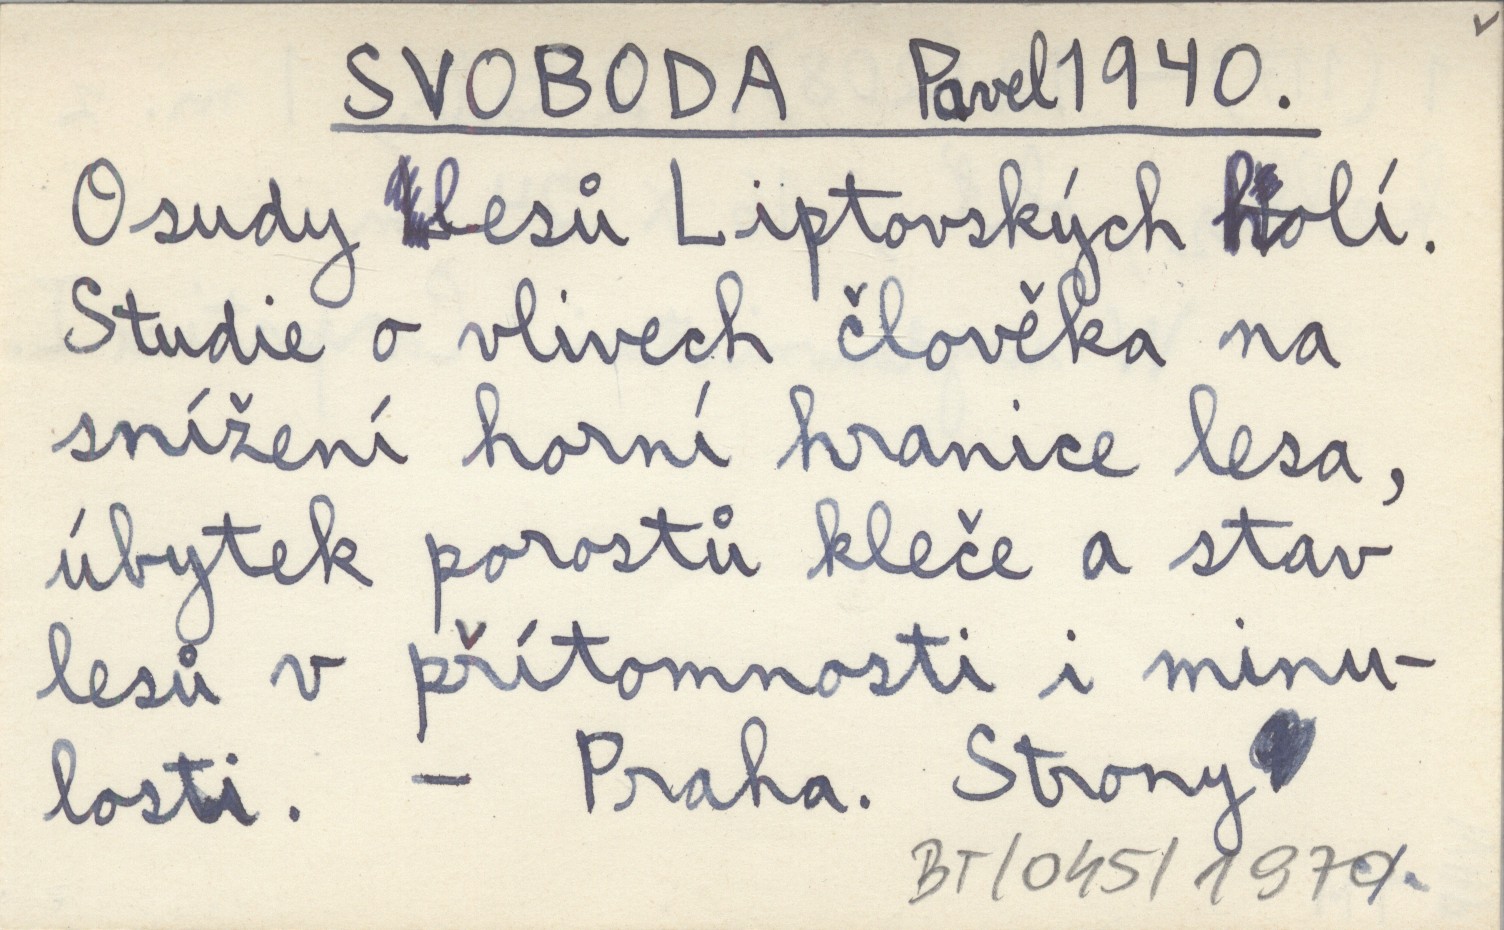 SVOBODA Pavel 1940.
Osudy lesů Liptovských holí.
Studie o vlivech člověka na
snížení horní hranice lesa,
úbytek porostů kleče a stav
lesů v přítomnosti i minu-
losti. – Praha. Strony
BT/045/1970.